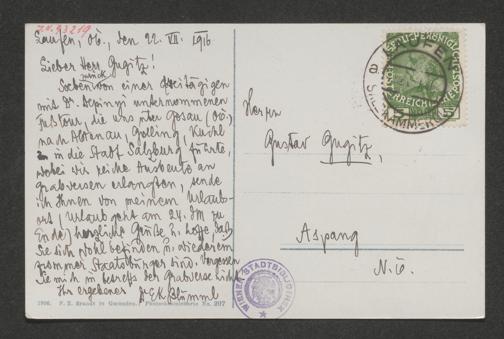 J.N. 93219
Laufen, OÖ., den 22. VII. 1916
Lieber Herr Gugitz!
Soeben von einer dreitägigen
zurück
mit Dr. Depinyi unternommenen
Fußtour, die uns über Gosau (OÖ.)
nach Abtenau, Golling, Kuchl
in die Stadt Salzburg führte,
wobei wir reiche Ausbeute an
Grabversen erlangten, sende
ich Ihnen von meinem Urlaub-
ort (Urlaub geht am 24. IM zu
Ende) herzliche Grüße u. hoffe, daß
Sie sich wohl befinden u. wiederum
strammer Staatsbürger sind. Vergessen
Sie mich in betreffs der Grabverse nicht
Ihr ergebener Dr EK Blümml
1906. F. E. Brandt in Gmunden. Postkarte No. 207
Herrn
Gustav Gugitz,
Aspang
N.Ö.
LAUFEN
WIENER STADTBIBLIOTHEK